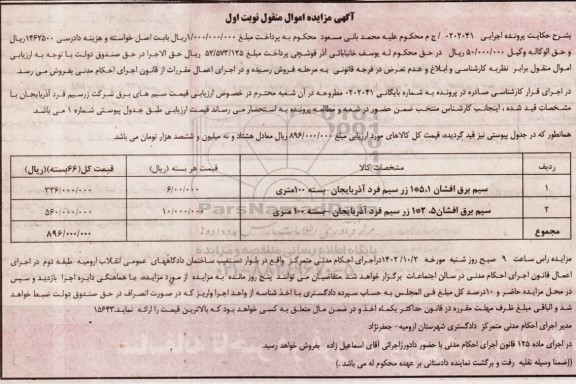 آگهی مزایده اموال منقول نوبت اول
بشرح حکایت پرونده اجرایی ۰۲۰۲۰۴۱ / ج م محکوم علیه محمد بانی مسعود محکوم به پرداخت مبلغ ۱/۰۰۰/۰۰۰/۰۰۰ریال بابت اصل خواسته و هزینه دادرسی ۱۴۶۲۵۰۰ریال
و حق الوکاله وکیل ۵۰/۰۰۰/۰۰۰ ریال در حق محکوم له یوسف خانبابائی آذر قوشچی پرداخت مبلغ ۵۲/۵۷۳/۱۲۵ ریال حق الاجرا در حق صندوق دولت با توجه به ارزیابی
اموال منقول برابر نظریه کارشناسی و ابلاغ و عدم تعرض در فرجه قانونی به مرحله فروش رسیده و در اجرای اعمال مقررات از قانون اجرای احکام مدنی بفروش می رسد
در اجرای قرار کارشناسی صادره در پرونده به شماره بایگانی ۰۲۰۲۰۴۱ مطروحه در آن شعبه محترم در خصوص ارزیابی قیمت سیم های برق شرکت زرسیم فرد آذربایجان با
مشخصات قید شده ، اینجانب کارشناس منتخب ضمن حضور در شعبه و مطالعه پرونده به استحضار می رساند قیمت ارزیابی طبق جدول پیوستی شماره ۱ می باشد.
همانطور که در جدول پیوستی نیز قید گردیده، قیمت کل کالاهای مورد ارزیابی مبلغ ۸۹۶/۰۰۰/۰۰۰ ریال معادل هشتاد و نه میلیون و ششصد هزار تومان می باشد.
ردیف مشخصات کالا قیمت هر بسته (ریال) قیمت کل(۶۶بسته)(ریال)
۱ سیم برق افشان ۱*۱.۵ زر سیم فرد آذربایجان بسته ۱۰۰متری ۶/۰۰/۰۰۰ ۳۳۶/۰۰۰/۰۰۰
۲ سیم برق افشان ۱*۲.۵ زر سیم فرد آذربایجان بسته ۱۰۰ متری ۱۰/۰۰۰/۰۰۰ ۵۶۰/۰۰۰/۰۰۰
مجموع ۸۹۶/۰۰۰/۰۰۰
مزایده راس ساعت ۹ صبح روز شنبه مورخه ۱۴۰۲/۱۰/۲دراجرای احکام مدنی متمرکز واقع در بلوار دستغیب ساختمان دادگاههای عمومی انقلاب ارومیه طبقه دوم در اجرای
اعمال قانون اجرای احکام مدنی در سالن اجتماعات برگزار خواهد شد متقاضیان می توانند پنج روز مانده به مزایده از مورد مزایده، با هماهنگی دایره اجرا بازدید و سپس
در محل مزایده حاضر و ۱۰درصد کل مبلغ فی المجلس به حساب سپرده دادگستری با اخذ شناسه از واحد اجرا واریز که در صورت انصراف در حق صندوق دولت ضبط خواهد
شد و الباقی مبلغ ظرف مهلت مقرره در قانون حداکثر یکماه اخذ و در ضمن مال متعلق به کسی خواهد بود که بالاترین قیمت را ارائه نماید ۱۵۶۴۳
مدیر اجرای احکام مدنی متمرکز دادگستری شهرستان ارومیه- جعفرنژاد
در اجرای ماده ۱۲۵ قانون اجرای احکام مدنی با حضور دادورزاجرائی آقای اسماعیل زاده بفروش خواهد رسید.
((ضمنا وسیله نقلیه رفت و برگشت نماینده دادستانی بر عهده محکوم له می باشد .)